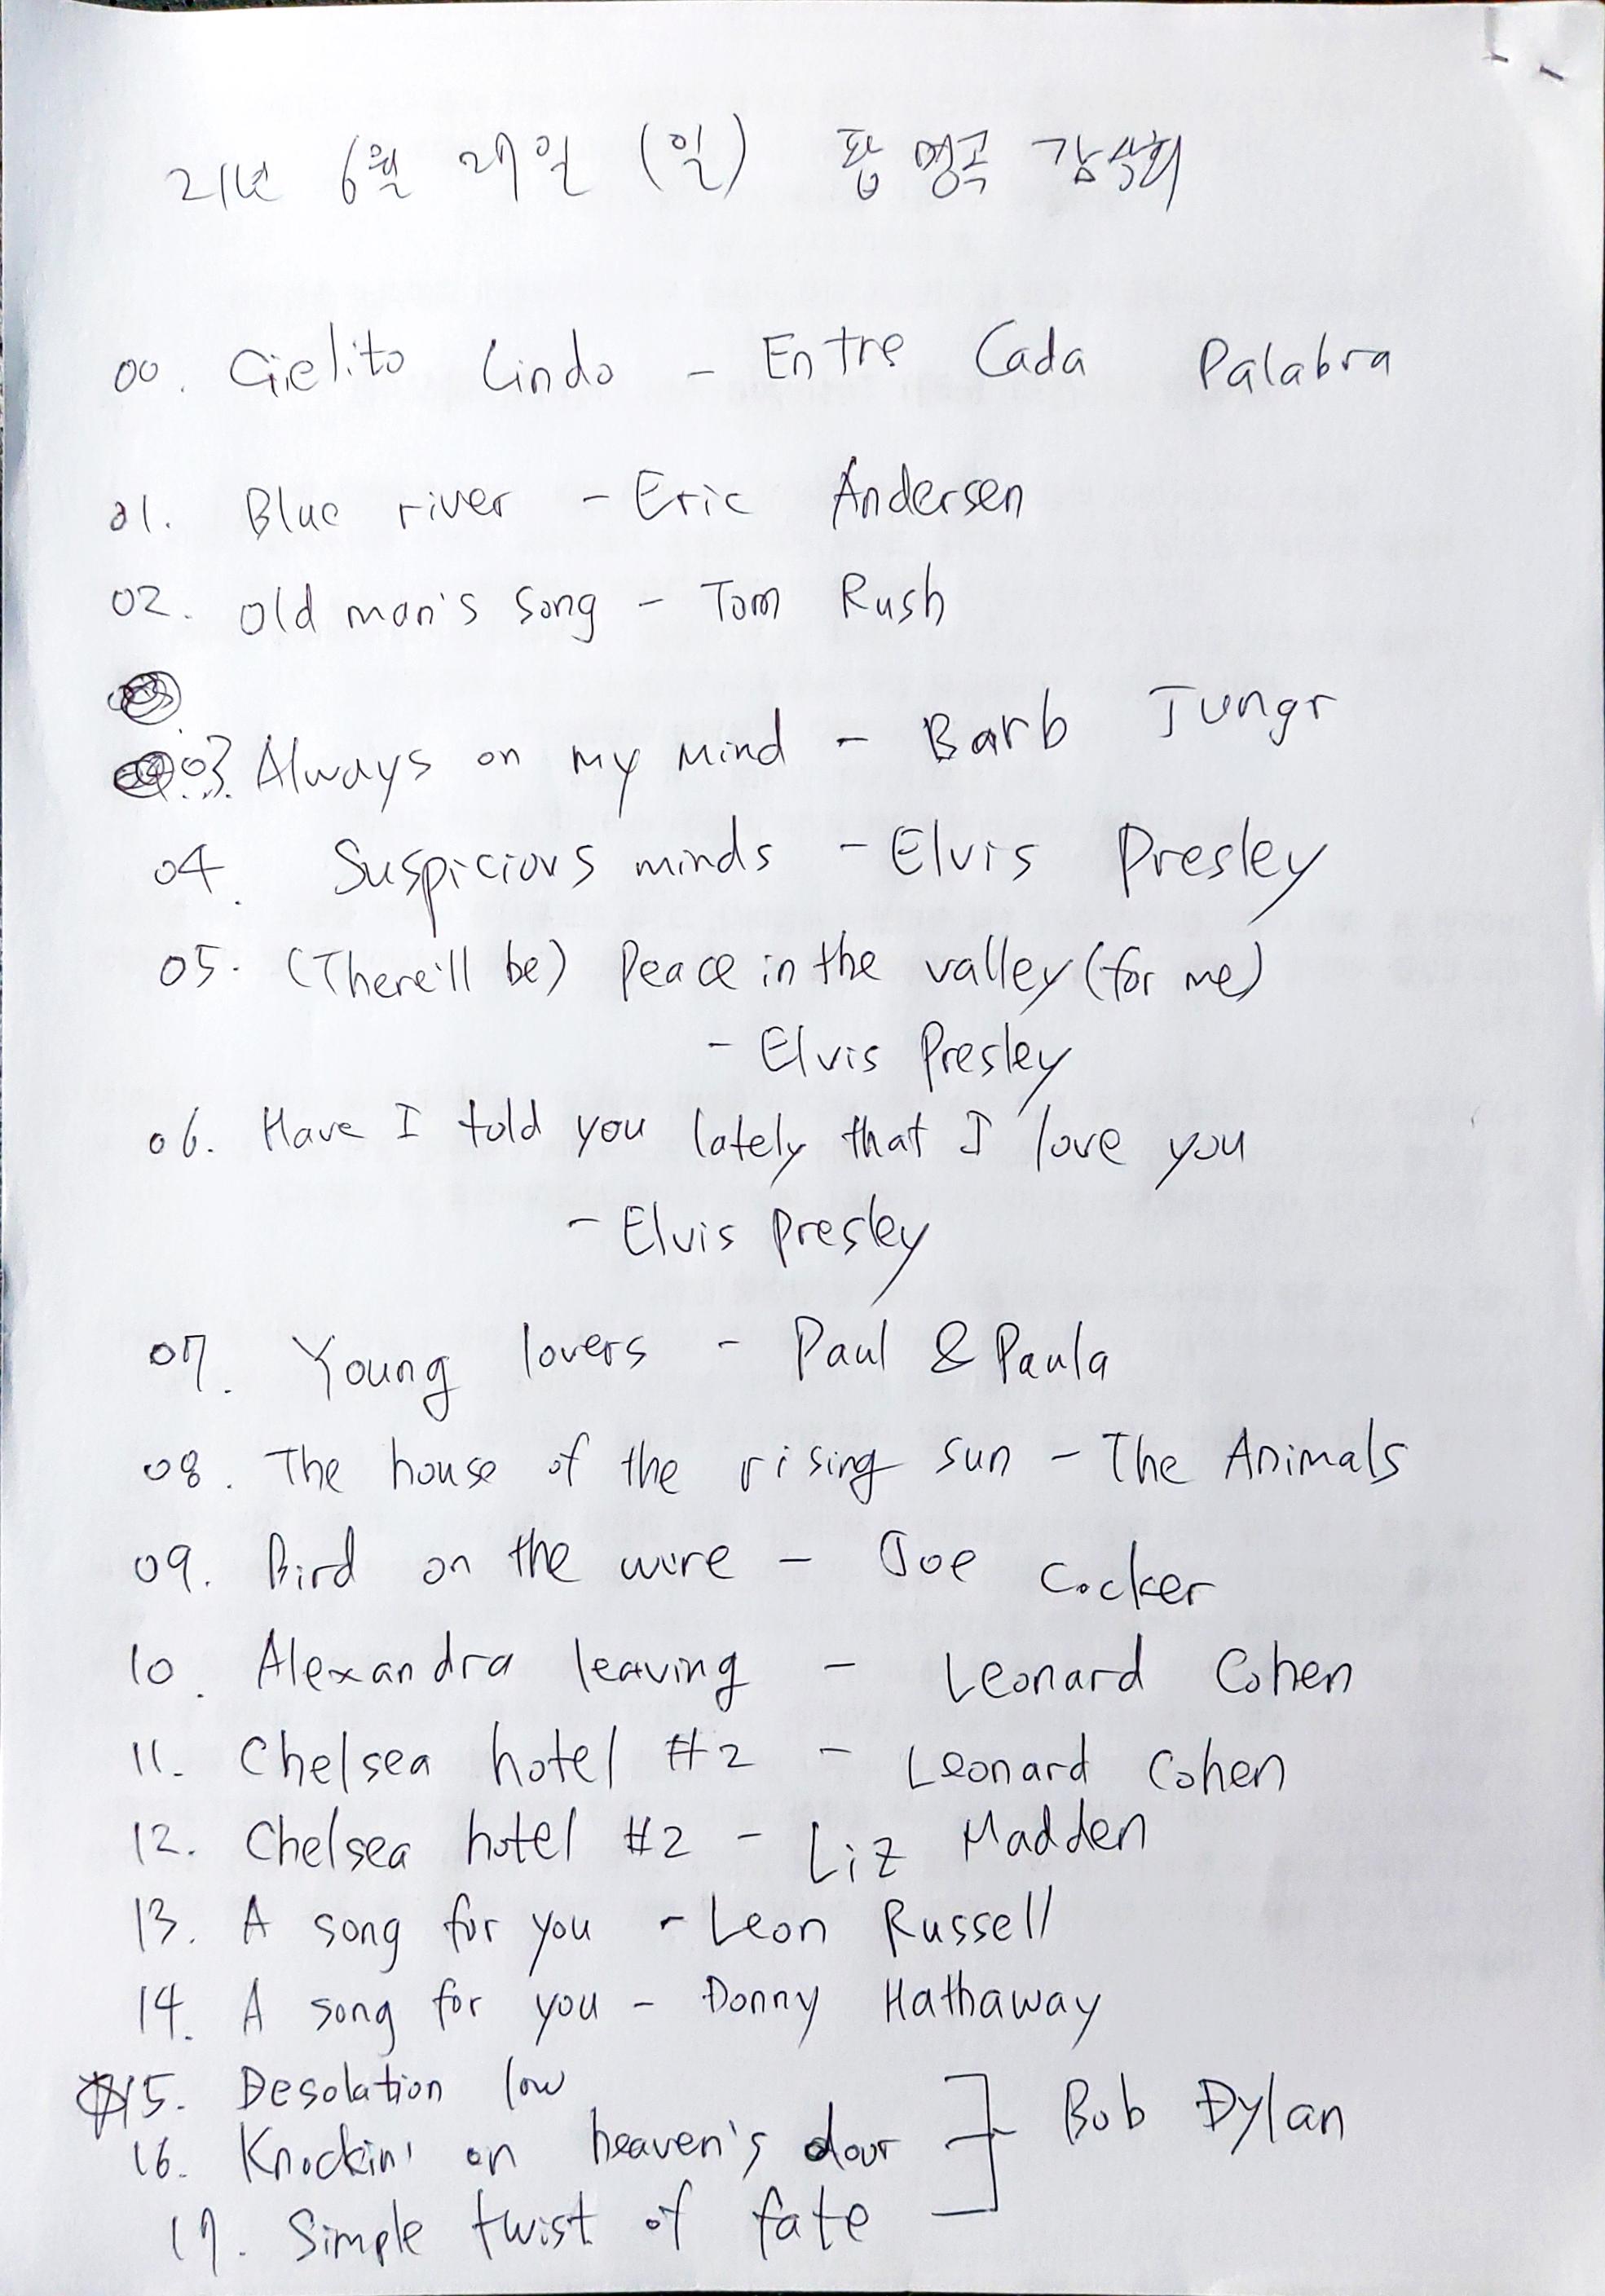 21년 6월 27일 (일) 팝 명곡 감상회
00. Cielito Lindo - Entre Cada Palabra
01. Blue river - Eric Andersen
02. Old man's song - Tom Rush
03. Always on my mind - Barb Jungr
04. Suspicious minds - Elvis Presley
05. (There'll be) Peace in the valley (for me)
- Elvis Presley
06. Have I told you lately that I love you
- Elvis Presley
07. Young lovers - Paul & Paula
08. The house of the rising sun - The Animals
09. Bird on the wire - Joe Cocker
10. Alexandra leaving - Leonard Cohen
11. Chelsea hotel #2 - Leonard Cohen
12. Chelsea hotel #2 - Liz Madden
13. A song for you - Leon Russell
14. A song for you - Donny Hathaway
15. Desolation low
16. Knockin' on heaven's door
Bob Dylan
17. Simple twist of fate